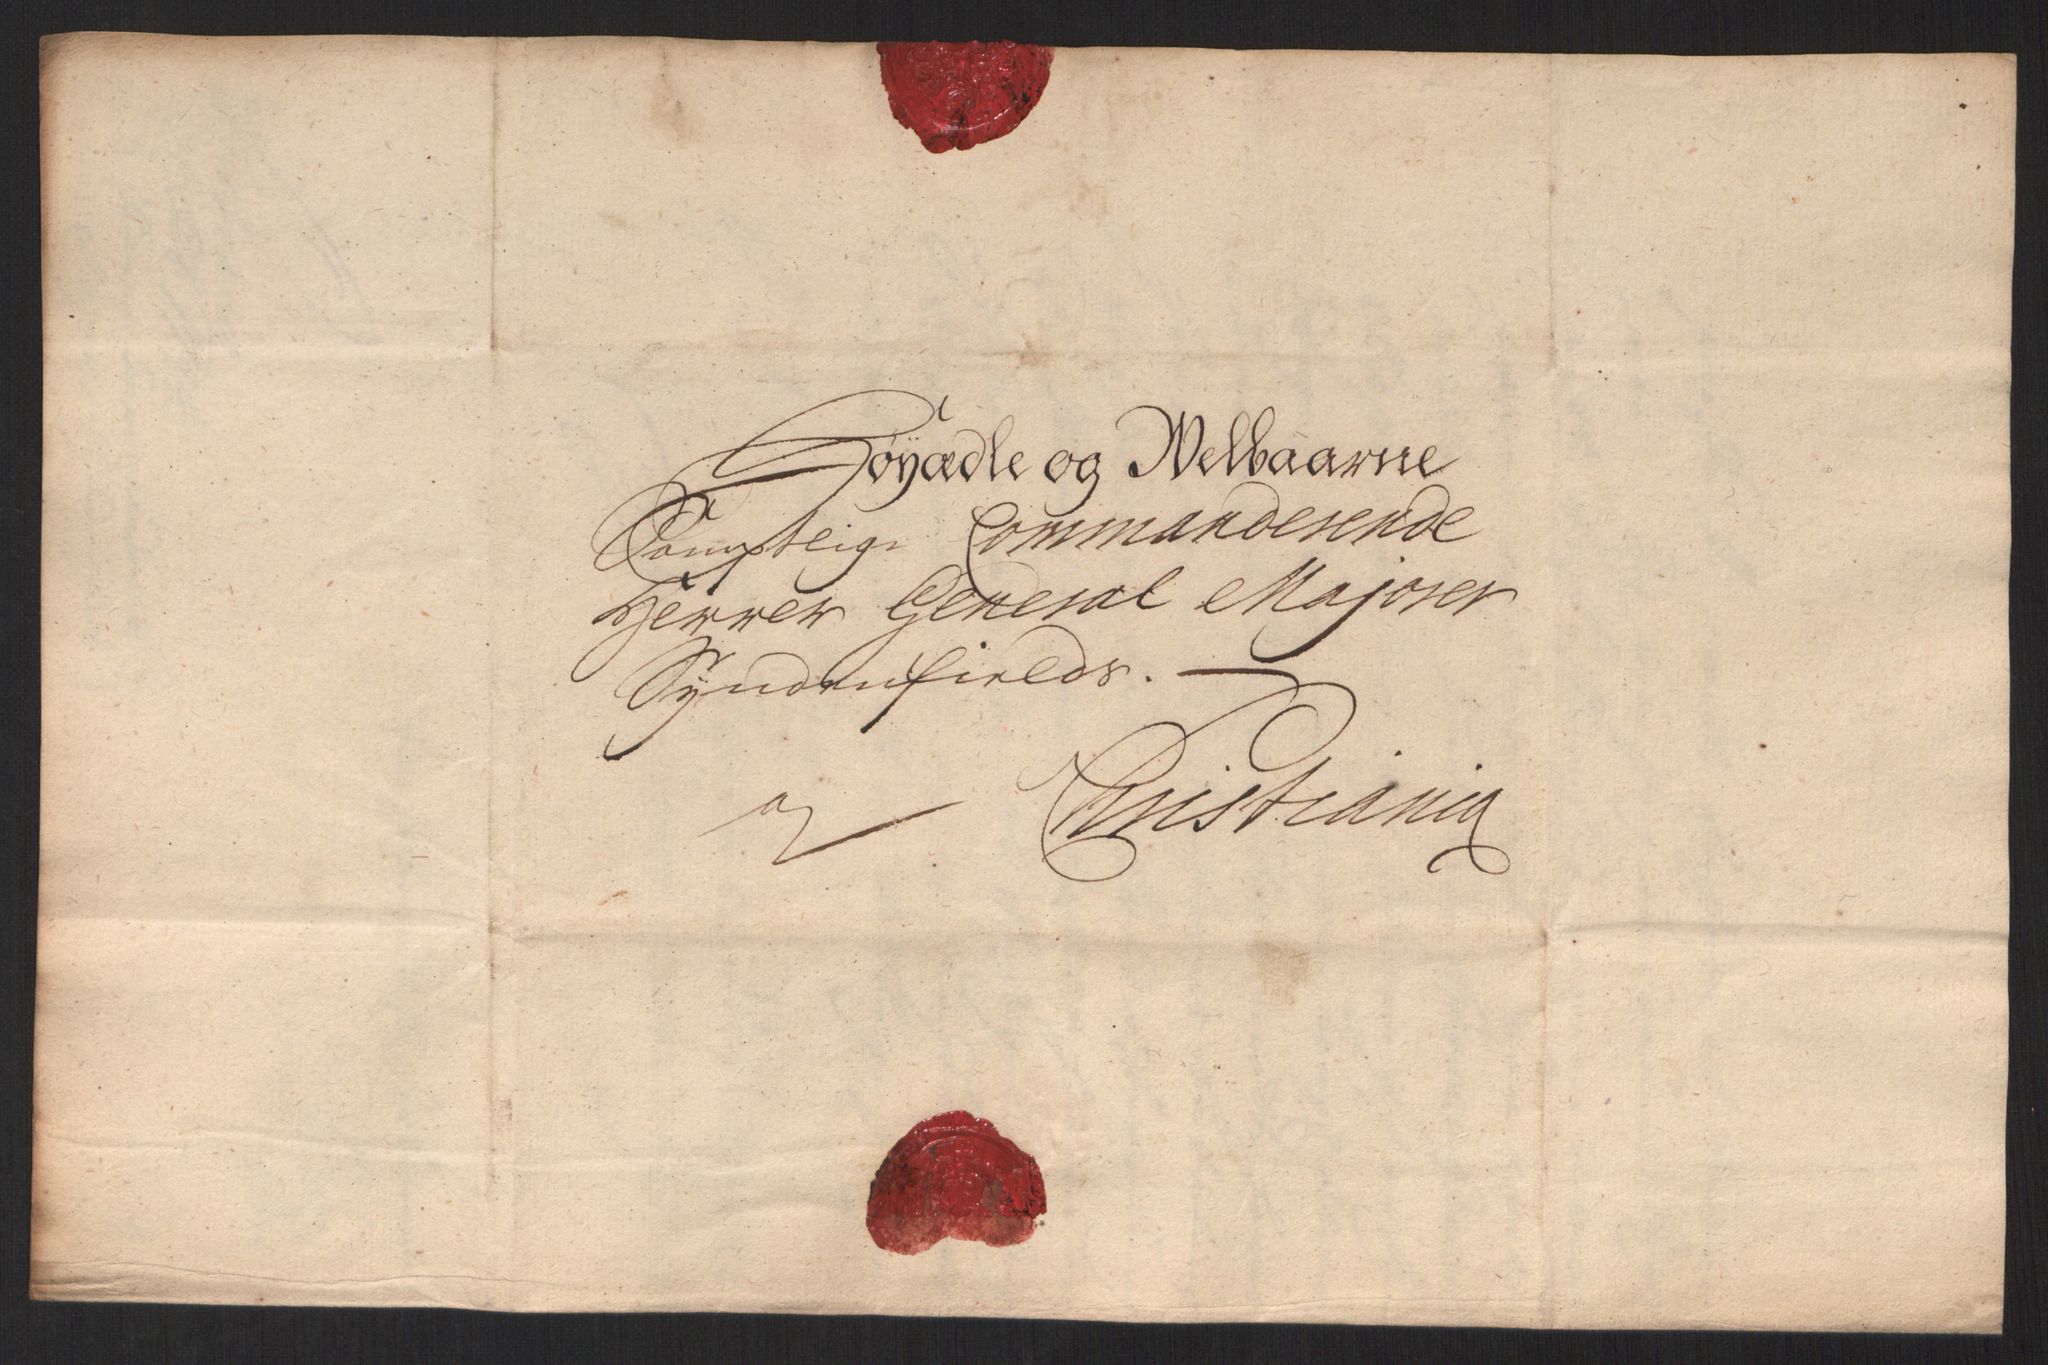 Høyædle og Welbaarne
Samptlige Commanderende
Herrer General Majorer
Syndenfields.
a Christiania